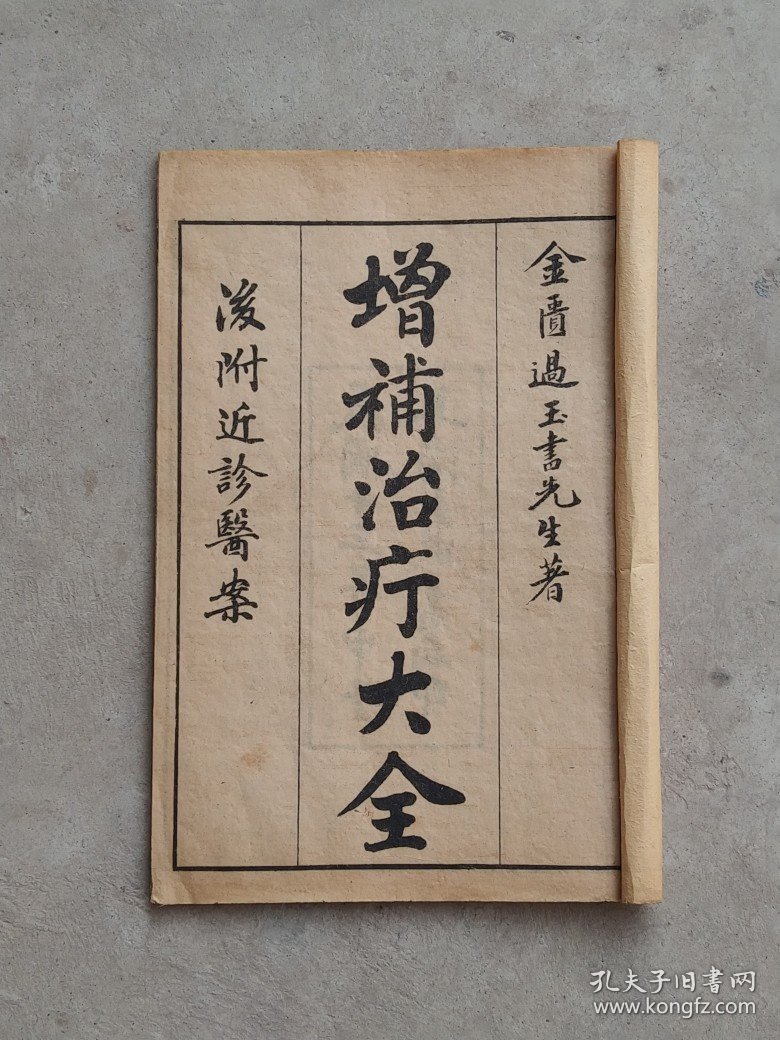 金匱過玉書先生著
增補治疔大全
後附近診醫案
孔夫子旧书网
www.kongfz.com